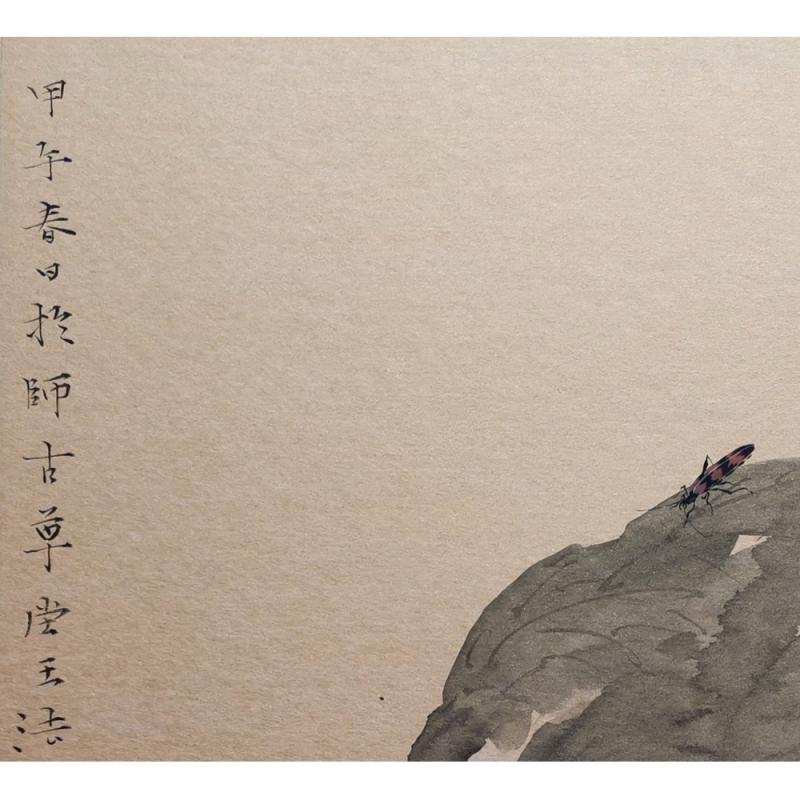 甲午春日於師古草堂王